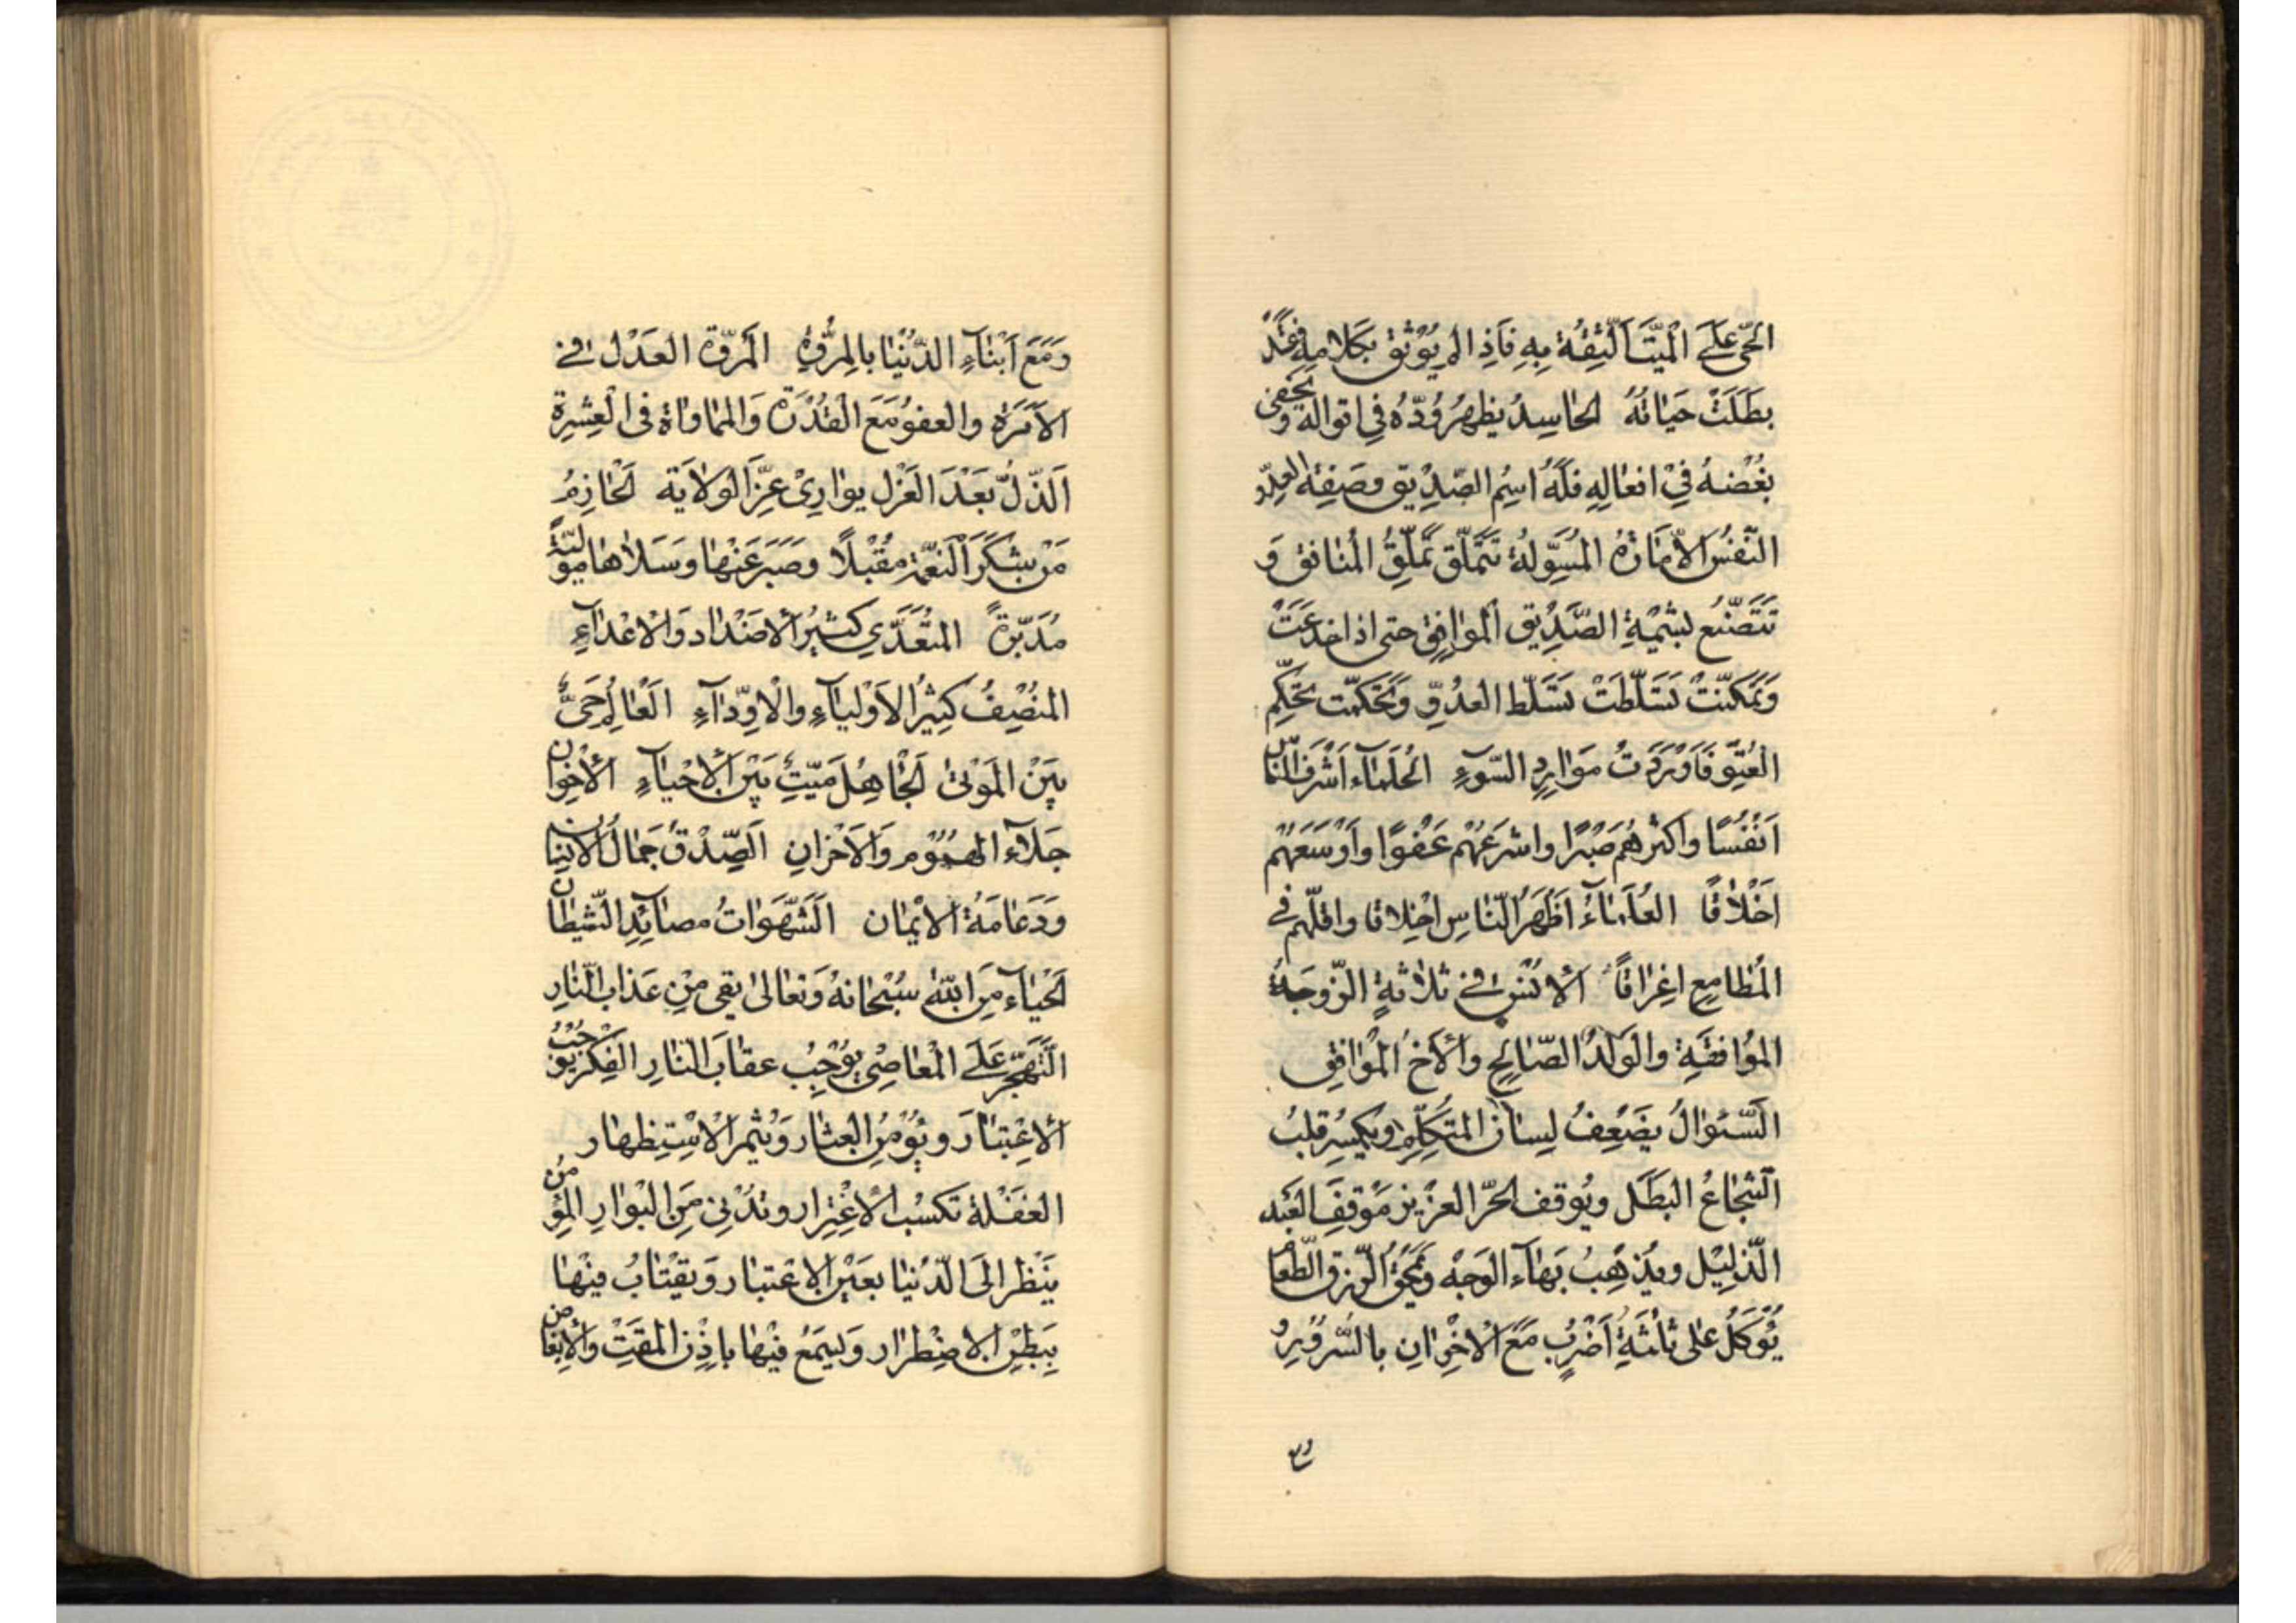 الحَيّ عَلَى الْمَيّتِ الثِّقَةُ بِهِ فَاذِا لم يُوْثَق بكَلامِهِ فَقَدْ
بطَلَتْ حَيَاتُهُ الحاسِدُ يظهرُ وُدّهُ فِي اقوالِه وَيخفى
بُغْضهُ فِيْ افعالِهِ فلَهُ اسِمُ الصّدِيْق وصَفِة العدِوّ
النّفسُ الامّارَةُ المُسَوِّلة تَتَمَلّق تَمَلّقُ المُنافق وَ
تَتَصَنّع بشِيْمَةِ الصّدِيْق الموَافِق حتى اذا خدعَتْ
وَتَمكّنتْ تَسَلّطَتْ تَسَلّط العدُوِّ وَتَحَكمّت تحَكّم
العُتِوّ فَاَوْرَدَتْ مَوَارِدِ السّوءِ الحُلَماء اَشْرَف النّاس
اَنْفُسًا واكثرهُم صَبْرًا واسْرَعهُمْ عَفْوًا واَوْسَعَهُم
اَخْلاقًا العُلَمَاءُ اَظْهَرُ النّاسِ اخْلِاقا واقلّهم في
المَطامِعِ اغِرْاقاً الاُنسُ في ثلاثةٍ الزّوجَة
الموُافقَةِ والوَلَدُ الصّالِحِ والاَخُ المُوْافِق
السّئوالُ يضَعِفُ لِسانَ المتكلِّم ويكِسُر قلبُ
الشّجاعُ البَطَل ويُوقف الحرّ العزِيز مَوْقفِ العَبْد
الذّليْل ويُذهِبُ بَهاء الوَجْه وَيَمْحَقُ الرّزق الطّعام
يُؤكَلُ على ثلثَةِ اَضْرُبٍ مَعَ الاخِوْانِ بالسّرُوْرِ و
وَمَعَ اَبْناءِ الدّنُيْا بالمرُوّةِ المَروّة العَدْل في
الاَمرَةِ والعفو مَعَ القُدْرَة وَالمُاواة في العِشِرةِ
اَلذّلُّ بعَدَ العَزْل يوارِيْ عِزّ الوِلايَة الحَازِمُ
مَنْ شكَرَ النّعمة مقُبْلاً وصَبَر عَنْها وسَلاها مولّيةً
مُدَبّرةً المتعَدّي كثيرُ الاضَدْاد وَالاعْداءِ
المنُصِفُ كَثيُر الاَوْلياءِ والاوِدّاءِ العَالِمُ حَيٌّ
بيَن المَوْتى الجاهِلُ مَيّتٌ بَيْنَ الاحْياءِ الاخِوان
جَلاء الهمُوْم وَالاَحْزانِ الصِّدْقُ جَمالُ الانِسان
وَدَعامَةُ الايْمان الشّهَوَاتُ مصائِدِ الشّيطان
الحَياء مِنَ اللّه سُبْحانهُ وَتعالى يقى مِنْ عَذاب النّارِ
التّهجّم عَلَى المَعاصِي يُوْجِبُ عقابَ النارِ الفِكَر يوْجبُ
الاعِتْبارَ ويُؤمنُ العِثار وَيثمر الاسْتِظهار
الغفَلة تكسُب الاغْتِرار وتُدْنى مِنَ البْوارِ المؤمن
يَنْظر الىَ الدّنيْا بعَيْن الاعْتبار وَيقتاب فيْها
بِبَطنِ الاضِطرْار وَيسَمَعُ فيْها باذنِ المقَتِ والابغاض